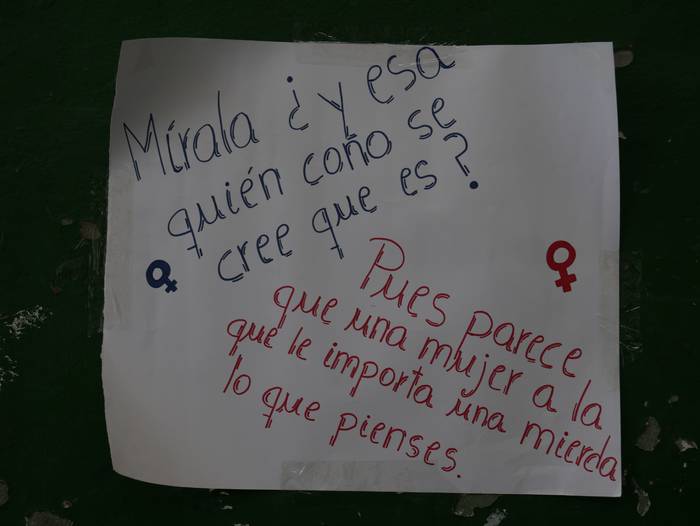 Mírala ¿y esa
quién coño se
cree que es?
Pues parece
que una mujer a la
que le importa una mierda
lo que pienses.